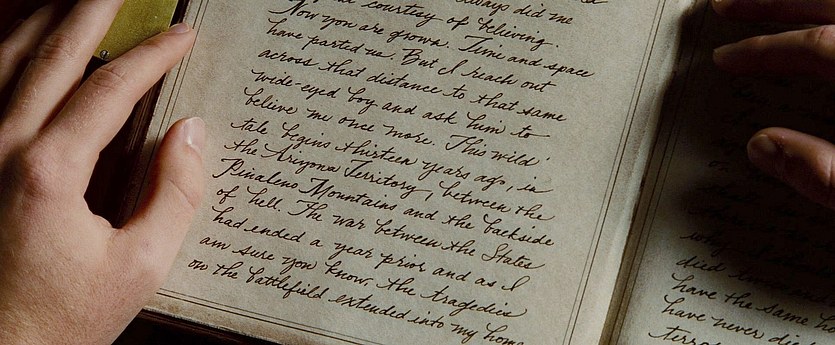 always did me
the courtesy of believing.
Now you are grown. Time and space
have parted us. But I reach out
across that distance to that same
wide-eyed boy and ask him to
believe me once more. This wild
tale begins thirteen years ago, in
the Arizona Territory, between the
Pinaleno Mountains and the backside
of hell. The war between the States
had ended a year prior and as I
am sure you know, the tragedies
on the battlefield extended into my home
died
have the same
have never died